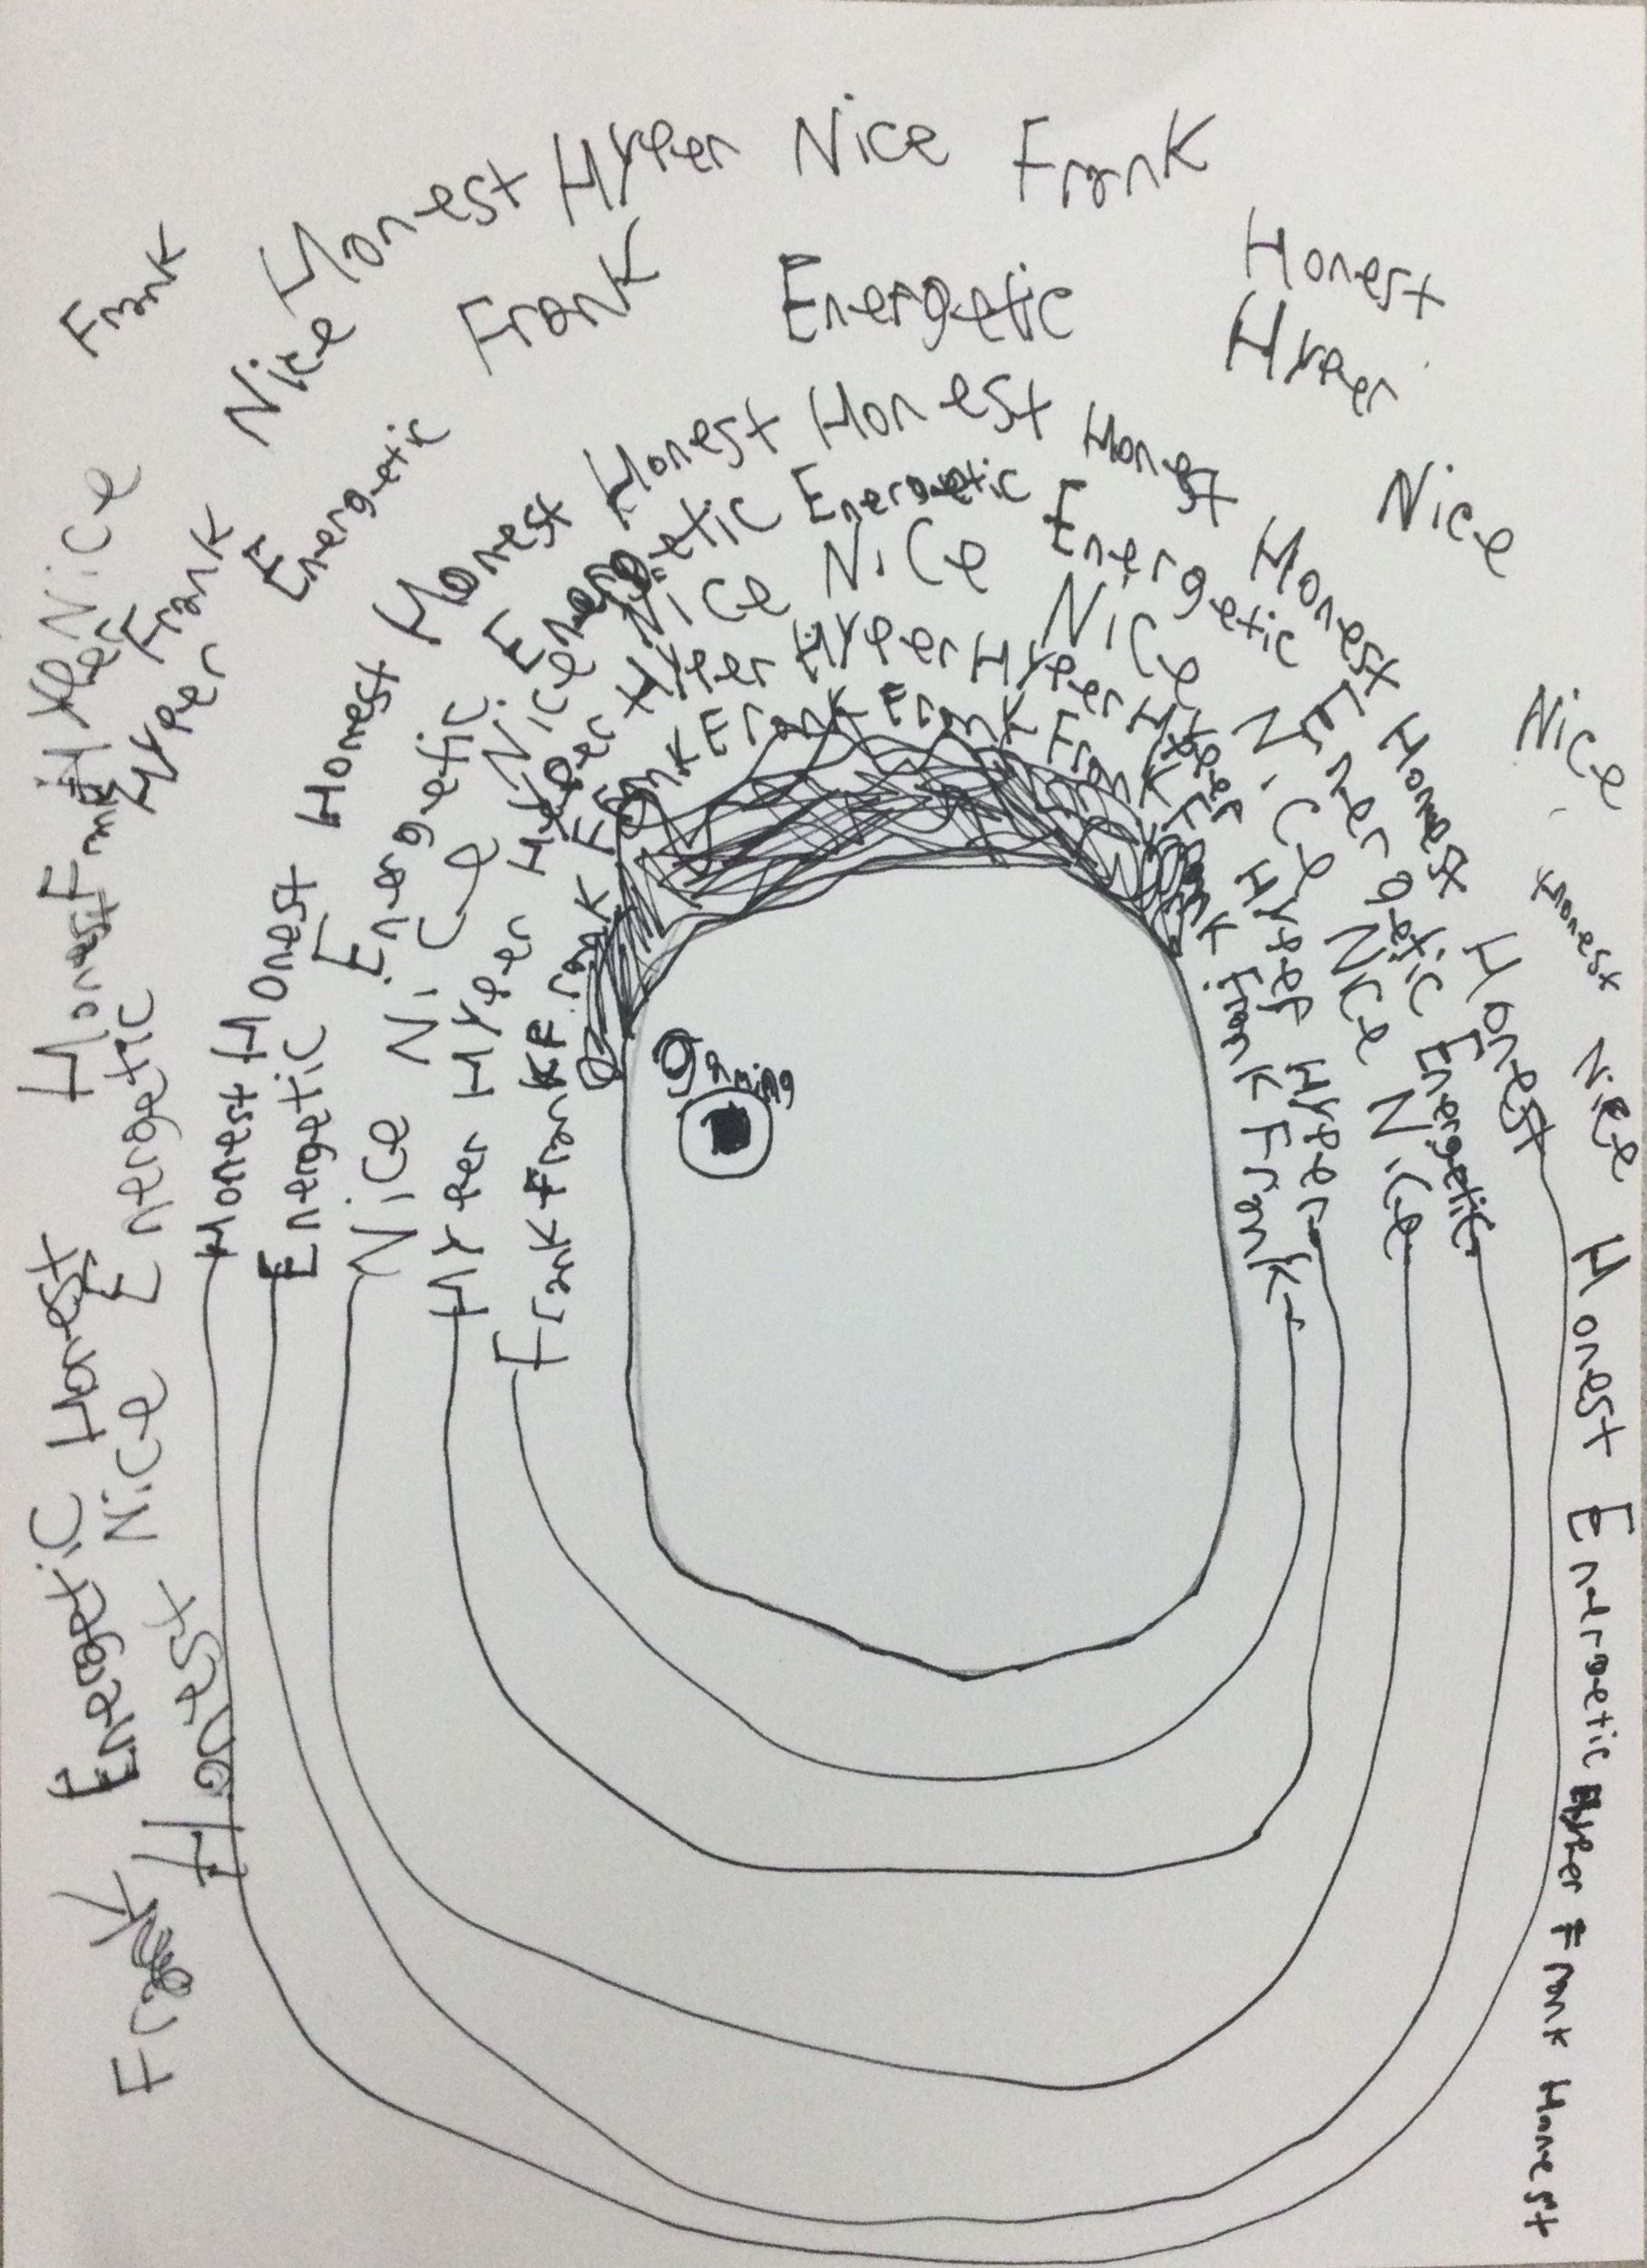 Frank
Nice Honest Hyper Nice Frank
Honest
Hyper
Nice
Nice
Honest
Nice
Honest Energetic Hyper Frank Honest
Frank Energetic
Energetic
Frank
Hyper
Nice
Hyper
Frank
Honest
Energetic
Honest
Nice
Energetic
Honest
Frank
Honest Honest Honest Honest Honest Honest Honest Honest Honest Honest Honest
Energetic Energetic Energetic Energetic Energetic Energetic Energetic
Nice Nice Nice Nice Nice Nice Nice Nice Nice
Hyper Hyper Hyper Hyper Hyper Hyper Hyper Hyper Hyper
Frank Frank Frank Frank Frank Frank Frank Frank Frank
gaming